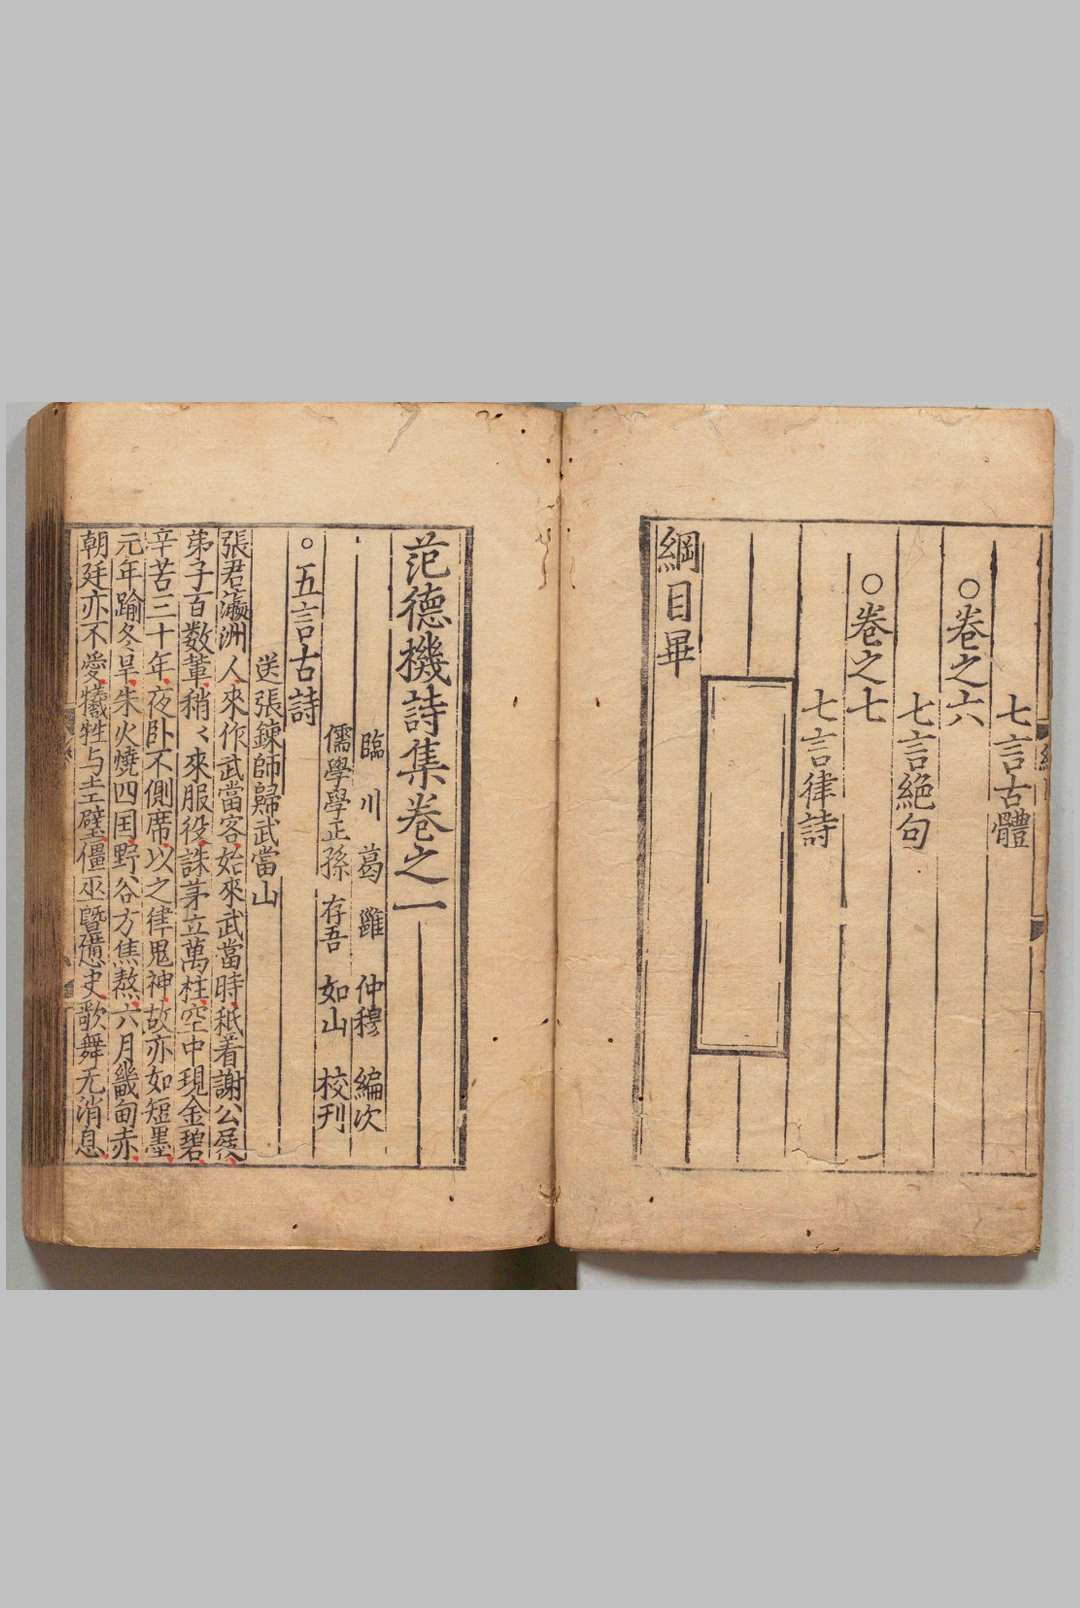 七言古體
○卷之六
七言絕句
○卷之七
七言律詩
綱目畢
范德機詩集卷之一
臨川葛雝仲穆編次
儒學學正孫存吾如山校刊
○五言古詩
送張鍊師歸武當山
張君瀛洲人來作武當客始來武當時秖着謝公屐
弟子百数輩稍〻來服役誅茅立萬柱空中現金碧
辛苦三十年夜卧不側席以之律鬼神故亦如短墨
元年踰冬旱朱火燒四国野谷方焦熬六月畿甸赤
朝廷亦不愛犧牲与圭璧僵巫曁憊史歌舞无消息